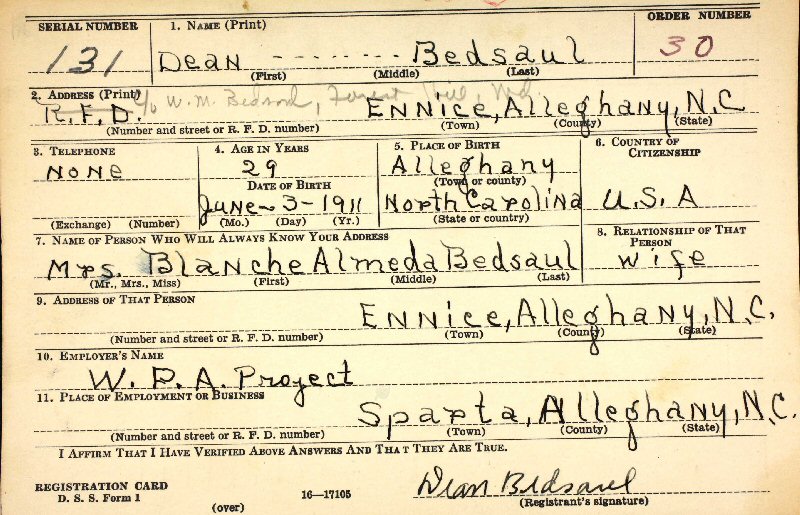 SERIAL NUMBER 1. NAME (Print) ORDER NUMBER
131 DEAN ------- BEDSAUL 30
(First) (Middle) (Last)
2. ADDRESS (Print) c/o W.M. Bedsaul, Forest Hill, Md.
R.F.D. ENNICE, Alleghany, N.C
(Number and street or R. F. D. number) (Town) (County) (State)
3. TELEPHONE 4. AGE IN YEARS 5. PLACE OF BIRTH 6. COUNTRY OF CITIZENSHIP
NONE 29 Alleghany
DATE OF BIRTH (Town or county)
June-3-1911 North Carolina U.S.A
(Exchange) (Number) (Mo.) (Day) (Yr.) (State or country)
7. NAME OF PERSON WHO WILL ALWAYS KNOW YOUR ADDRESS 8. RELATIONSHIP OF THAT PERSON
Mrs. Blanche Almeda Bedsaul wife
(Mr., Mrs., Miss) (First) (Middle) (Last)
9. ADDRESS OF THAT PERSON
ENNICE, Alleghany, N.C.
(Number and street or R. F. D. number) (Town) (County) (State)
10. EMPLOYER'S NAME
W.P.A. Project
11. PLACE OF EMPLOYMENT OR BUSINESS
Sparta, Alleghany, N.C.
(Number and street or R. F. D. number) (Town) (County) (State)
I AFFIRM THAT I HAVE VERIFIED ABOVE ANSWERS AND THAT THEY ARE TRUE.
REGISTRATION CARD
D. S. S. Form 1 16—17105 Dean Bedsaul
(over) (Registrant's signature)